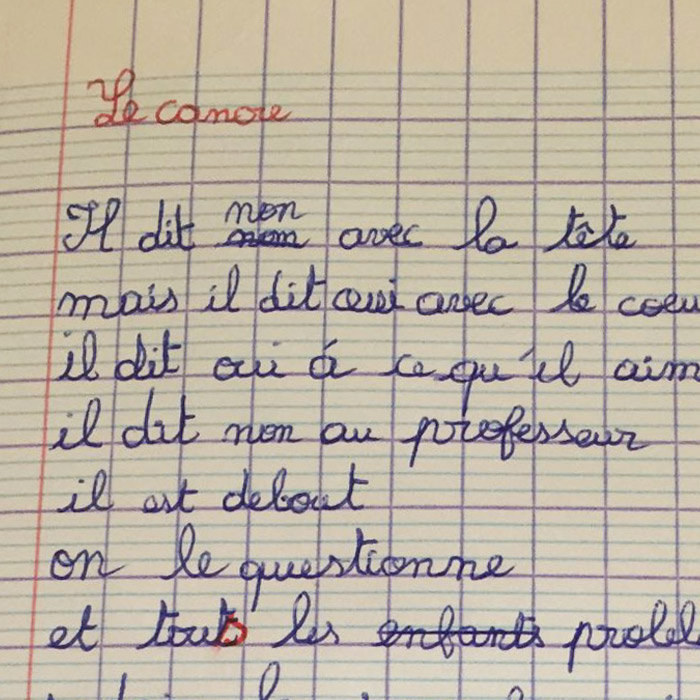 Le cancre
Il dit non avec la tête
mais il dit oui avec le coeu
il dit oui à ce qu'il aim
il dit non au professeur
il est debout
on le questionne
et tous les problè